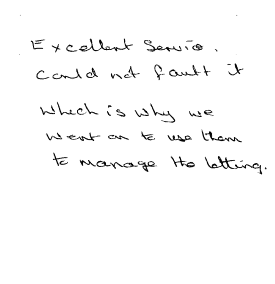 Excellent Service.
Could not fault it
which is why we
went on to use them
to manage the letting.